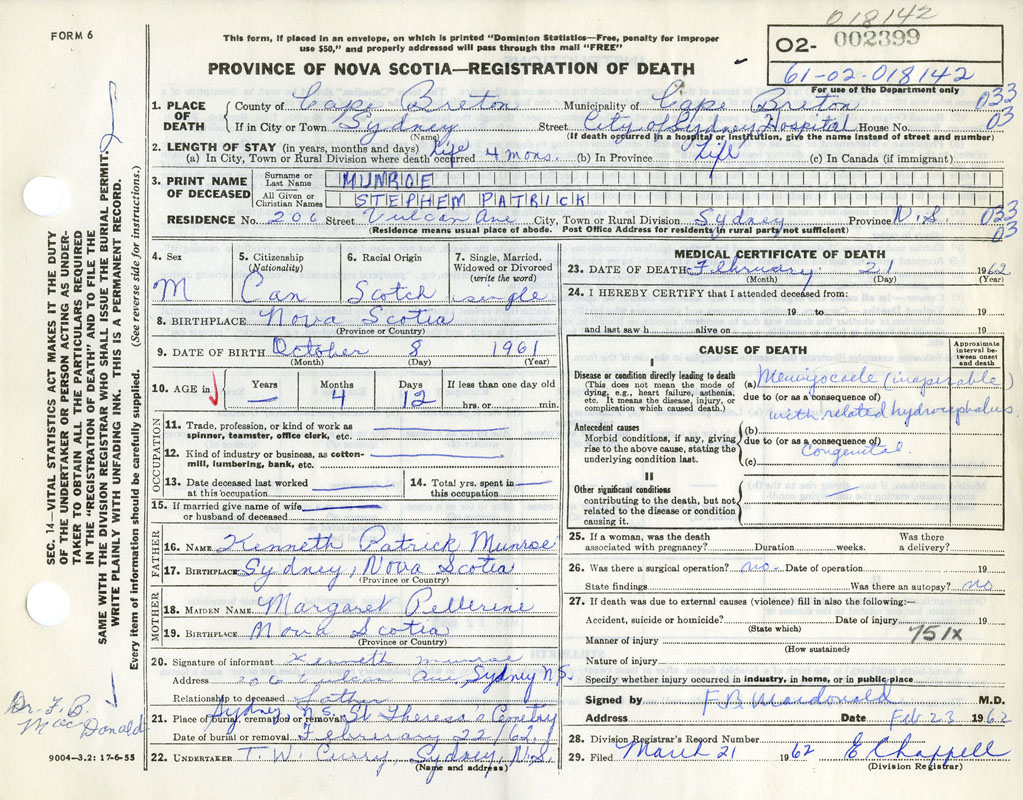 018142
FORM 6
This form, if placed in an envelope, on which is printed "Dominion Statistics—Free, penalty for improper
use $50," and properly addressed will pass through the mail "FREE"
02- 002399
61-02-018142
For use of the Department only
PROVINCE OF NOVA SCOTIA—REGISTRATION OF DEATH
1. PLACE OF DEATH County of Cape Breton Municipality of Cape Breton 033
If in City or Town Sydney Street City of Sydney Hospital House No. 03
(Name) (If death occurred in a hospital or institution, give the name instead of street and number)
2. LENGTH OF STAY (in years, months and days) Life Life
(a) In City, Town or Rural Division where death occurred 4 mons. (b) In Province (c) In Canada (if immigrant)
3. PRINT NAME OF DECEASED Surname or Last Name MUNROE
All Given or Christian Names STEPHEM PATRICK
RESIDENCE No. 206 Street Vulcan Ave City, Town or Rural Division Sydney Province N.S. 033
(Residence means usual place of abode. Post Office Address for residents in rural parts not sufficient) 03
4. Sex 5. Citizenship (Nationality) 6. Racial Origin 7. Single, Married, Widowed or Divorced (write the word)
M Can Scotch single
8. BIRTHPLACE Nova Scotia
(Province or Country)
9. DATE OF BIRTH October 8 1961
(Month) (Day) (Year)
10. AGE in Years Months Days If less than one day old
— 4 12 hrs. or min.
OCCUPATION
11. Trade, profession, or kind of work as
spinner, teamster, office clerk, etc.
12. Kind of industry or business, as cotton-
mill, lumbering, bank, etc.
13. Date deceased last worked
at this occupation
14. Total yrs. spent in
this occupation
15. If married give name of wife
or husband of deceased
FATHER
16. NAME Kenneth Patrick Munroe
17. BIRTHPLACE Sydney, Nova Scotia
(Province or Country)
MOTHER
18. MAIDEN NAME Margaret Pellerine
19. BIRTHPLACE Nova Scotia
(Province or Country)
20. Signature of informant Kenneth Munroe
Address 206 Vulcan Ave, Sydney N.S.
Relationship to deceased father
21. Place of burial, cremation or removal Sydney N.S. St Theresa's Cemetery
Date of burial or removal February 22/62
22. UNDERTAKER T. W. Curry Sydney, N.S.
(Name and address)
MEDICAL CERTIFICATE OF DEATH
23. DATE OF DEATH: February 21 1962
(Month) (Day) (Year)
24. I HEREBY CERTIFY that I attended deceased from:
19 to 19
and last saw h alive on 19
CAUSE OF DEATH
Approximate interval between onset and death
I
Disease or condition directly leading to death
(This does not mean the mode of
dying, e.g., heart failure, asthenia,
etc. It means the disease, injury, or
complication which caused death.)
(a) Meningocoele (inoperable)
due to (or as a consequence of)
with related hydrocephalus.
Antecedent causes
Morbid conditions, if any, giving
rise to the above cause, stating the
underlying condition last.
(b)
due to (or as a consequence of)
Congenital.
(c)
II
Other significant conditions
contributing to the death, but not
related to the disease or condition
causing it.
—
25. If a woman, was the death Was there
associated with pregnancy? Duration weeks. a delivery?
26. Was there a surgical operation? no. Date of operation 19
State findings Was there an autopsy? no
27. If death was due to external causes (violence) fill in also the following:—
Accident, suicide or homicide? Date of injury 19
(State which) 751X
Manner of injury
(How sustained)
Nature of injury
Specify whether injury occurred in industry, in home, or in public place
Signed by F.B. Macdonald M.D.
Address Date Feb 23 1962
28. Division Registrar's Record Number
29. Filed March 21 1962 E Chappell
(Division Registrar)
SEC. 14—VITAL STATISTICS ACT MAKES IT THE DUTY
OF THE UNDERTAKER OR PERSON ACTING AS UNDER-
TAKER TO OBTAIN ALL THE PARTICULARS REQUIRED
IN THE "REGISTRATION OF DEATH" AND TO FILE THE
SAME WITH THE DIVISION REGISTRAR WHO SHALL ISSUE THE BURIAL PERMIT.
WRITE PLAINLY WITH UNFADING INK. THIS IS A PERMANENT RECORD.
Every item of information should be carefully supplied. (See reverse side for instructions.)
Dr. F. B.
MacDonald
9004—3.2: 17-6-55